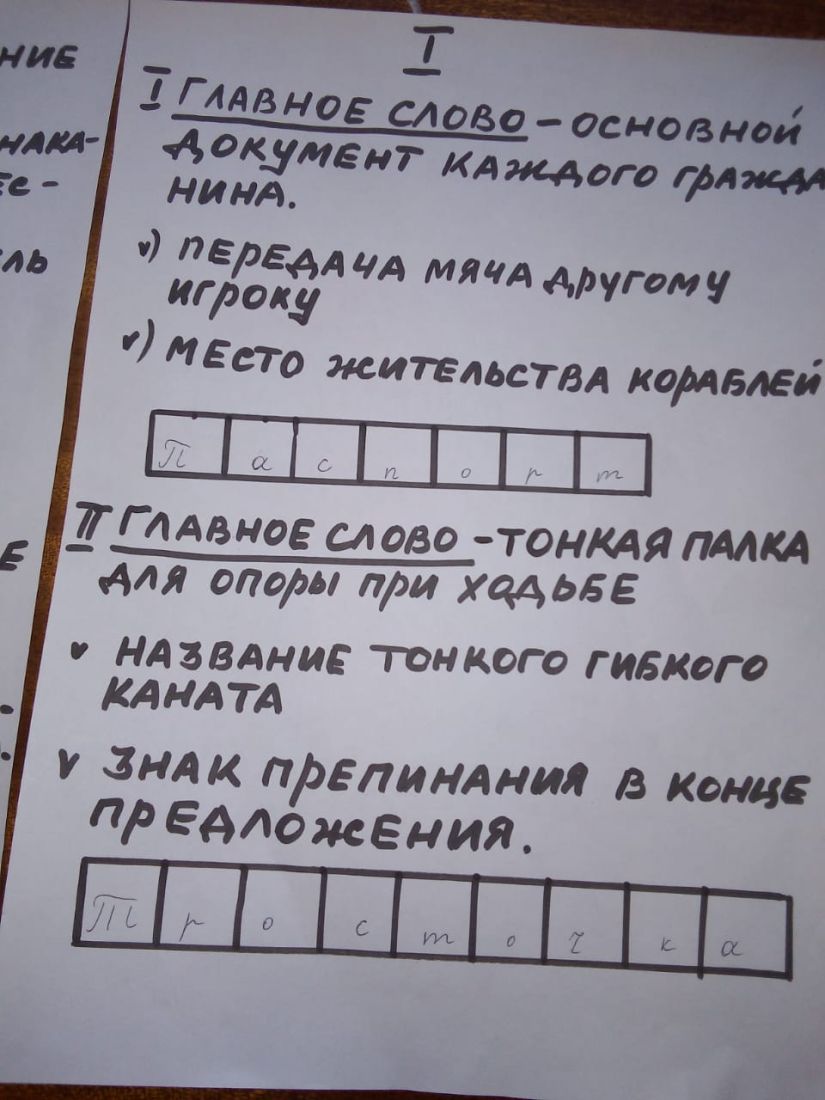 НИЕ
НАКА-
ЕС-
ЛЬ
Е
I
I ГЛАВНОЕ СЛОВО - ОСНОВНОЙ
ДОКУМЕНТ КАЖДОГО ГРАЖДА
НИНА.
v) ПЕРЕДАЧА МЯЧА ДРУГОМУ
ИГРОКУ
v) МЕСТО ЖИТЕЛЬСТВА КОРАБЛЕЙ
П а с п о р т
II ГЛАВНОЕ СЛОВО - ТОНКАЯ ПАЛКА
ДЛЯ ОПОРЫ ПРИ ХОДЬБЕ
v НАЗВАНИЕ ТОНКОГО ГИБКОГО
КАНАТА
v ЗНАК ПРЕПИНАНИЯ В КОНЦЕ
ПРЕДЛОЖЕНИЯ.
Т р о с т о ч к а